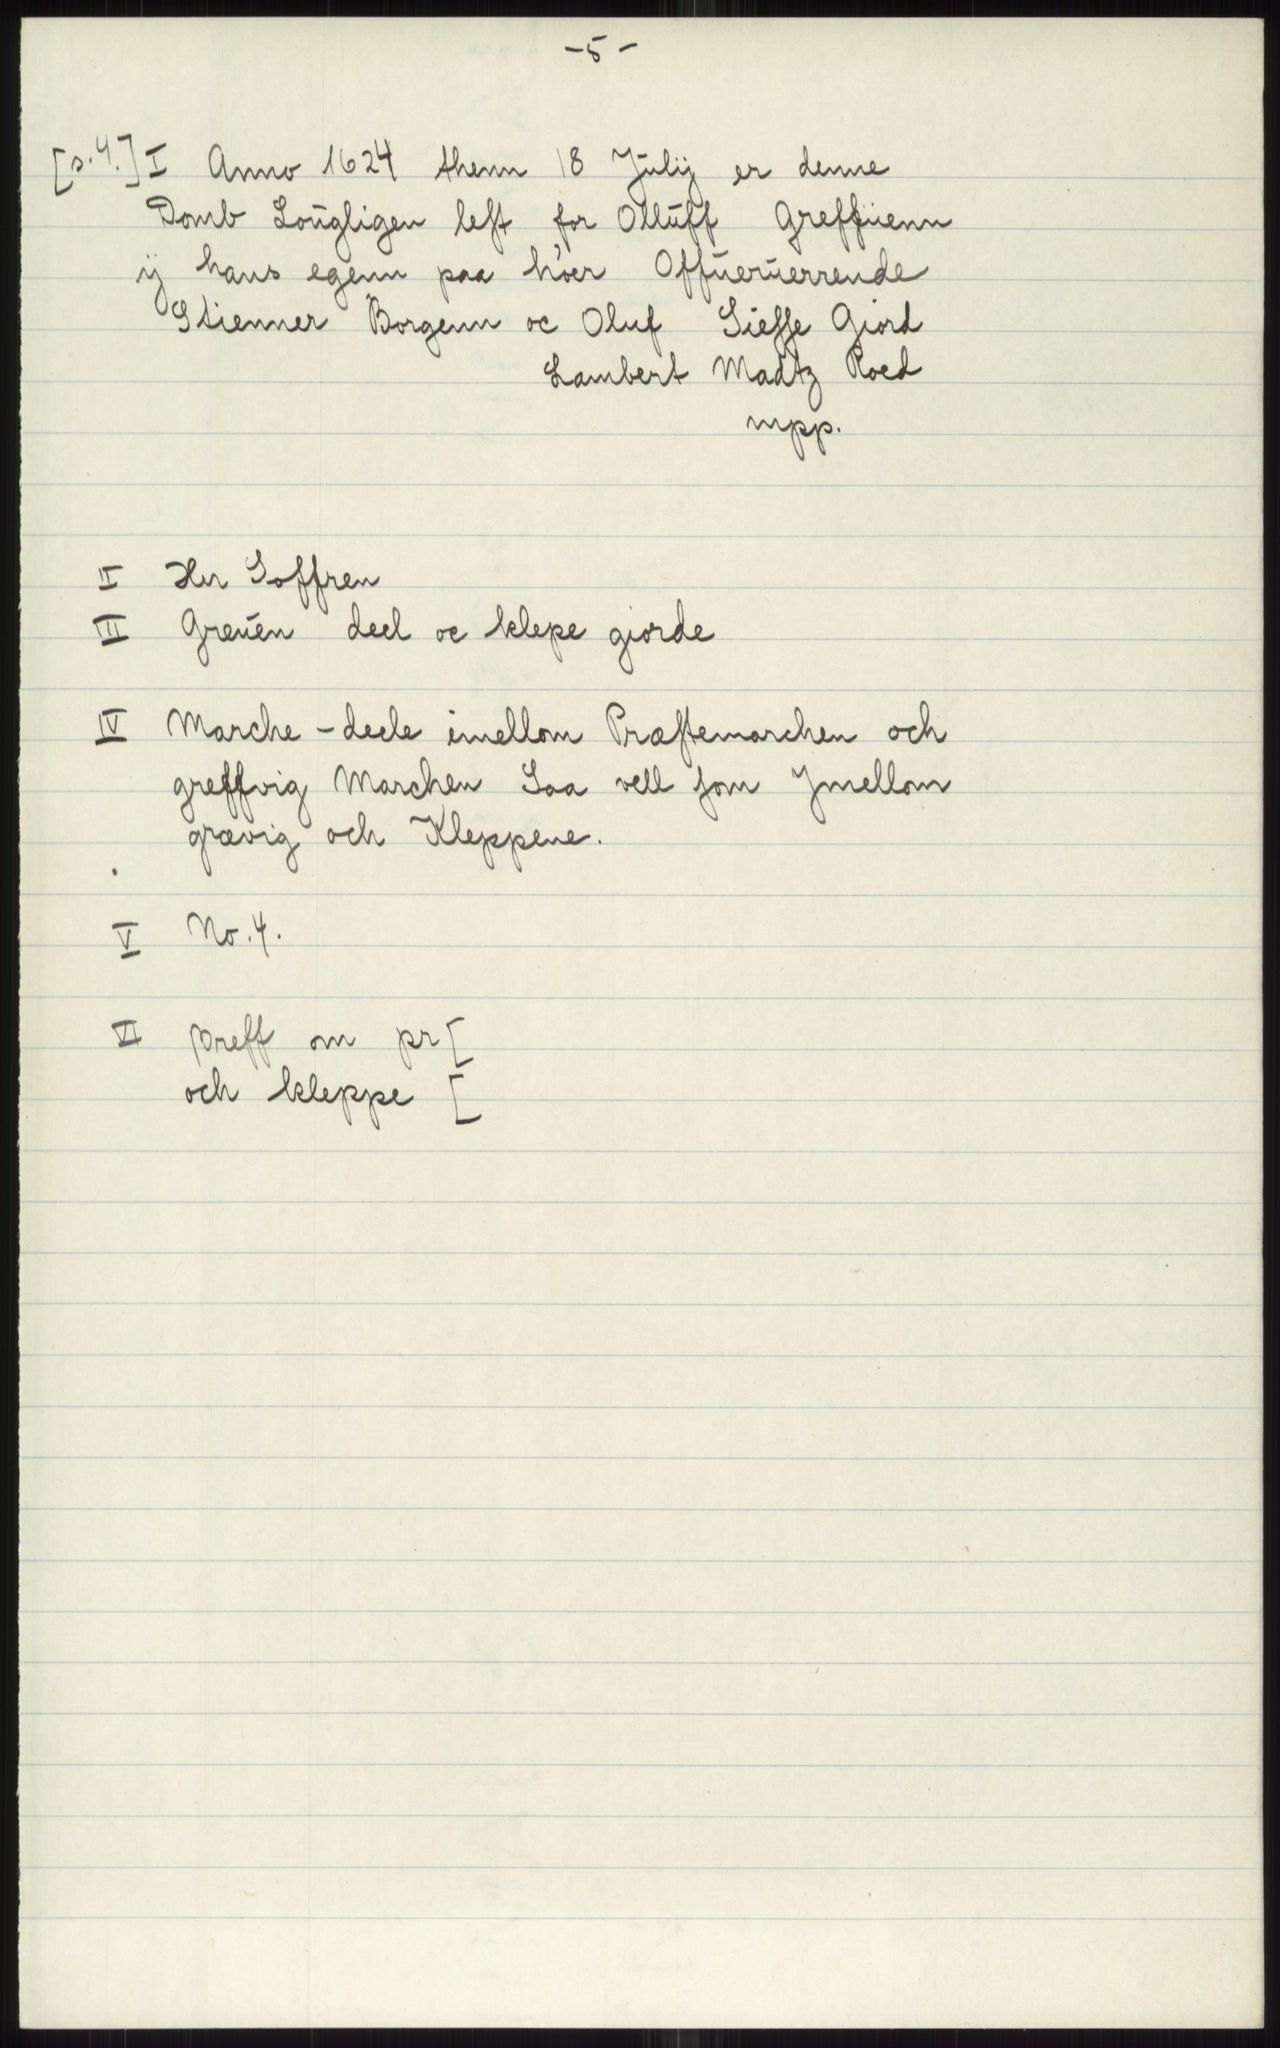 -5-
[s.4.] I Anno 1624 thenn 18 Júlij er denne
Domb Loúgligen lest for Ollúff Greffúenn
ij hans egenn paa hóer Offúerúerrende
Stienner Borgenn oc Oluf Siesse Giord
Lambert Madtz Roed
mpp.
II Her Soffren
III Greúen deel oc klepe giorde
IV Marche-deele imellom Præstemarchen och
greffvig Marchen Saa vell som Jmellom
grævig och Kleppene.
V No. 4.
VI Breff om pr [
och kleppe [